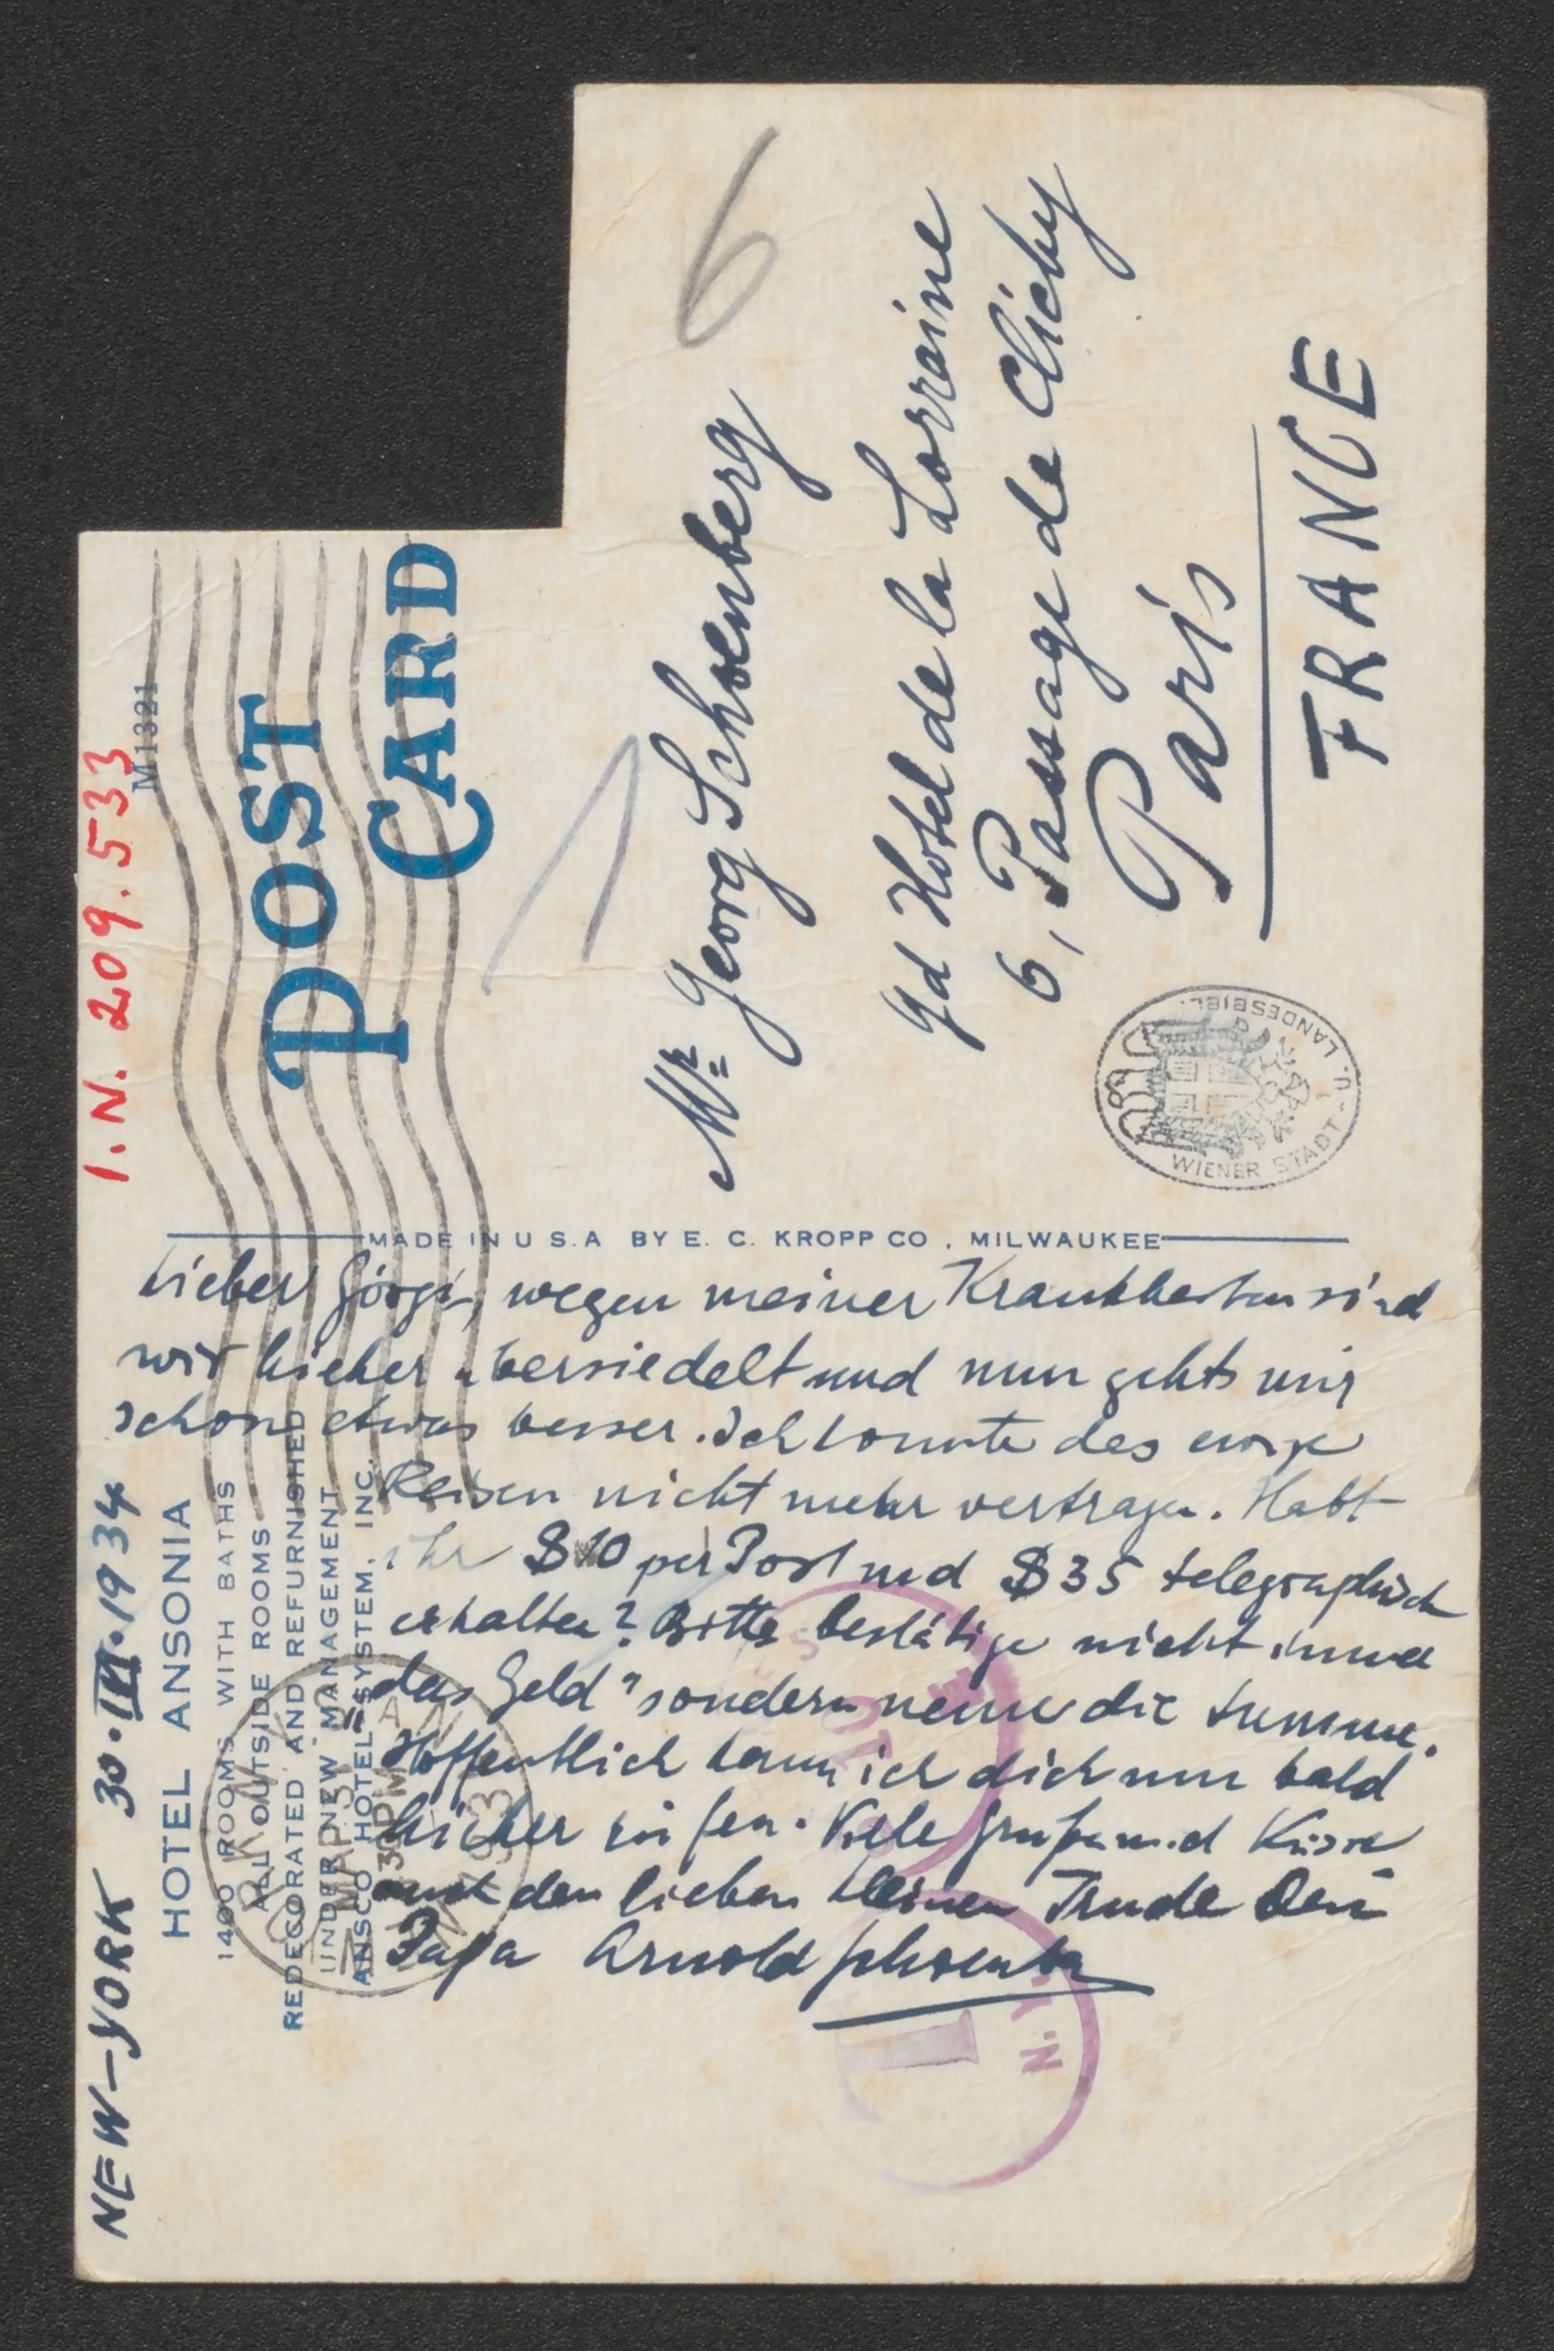 I.N. 209.533
M1321
POST
CARD
6
Mr Georg Schoenberg
gd Hotel de la Lorraine
6, Passage de Clichy
Paris
FRANCE
WIENER STADT- U. LANDESBIBL.
MADE IN U S.A BY E. C. KROPP CO , MILWAUKEE
NEW-YORK 30.III.1934
HOTEL ANSONIA
1400 ROOMS WITH BATHS
ALL OUTSIDE ROOMS
REDECORATED AND REFURNISHED
UNDER NEW MANAGEMENT
ANSCO HOTEL SYSTEM, INC.
Lieber Görgi, wegen meiner Krankheiten sind
wir hieher übersiedelt und nun gehts mir
schon etwas besser. Ich konnte das ewige
Reisen nicht mehr vertragen. Habt
ihr $10 per Post und $35 telegraphisch
erhalten? Bitte bestätige nicht immer
"das Geld" sondern nenne die Summe.
Hoffentlich kann ich dich nun bald
hieher rufen. Viele Grüße und Küsse
auch den lieben kleinen Trude Dein
Papa Arnold Schoenberg
N.Y.